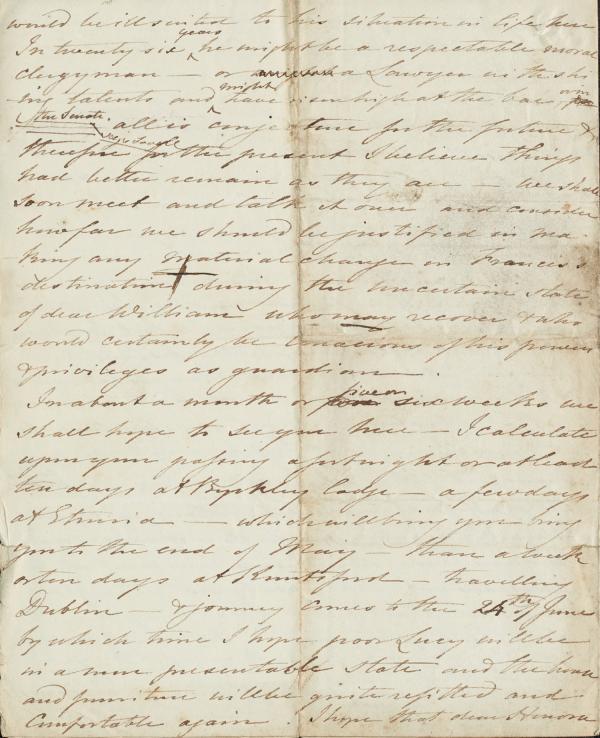 would be ill suited to his situation in life here
In twenty six years he might be a respectable moral
clergyman — or a Lawyer with shi-
-ing talents and might have risen high at the bar, or
in the Senate. all is conjecture for the future &
therefore for the present I believe things
had better remain as they are — we shall
soon meet and talk it over and consider
how far we should be justified in ma-
king any material change in Francis's
destination during the uncertain state
of dear William who may recover & who
would certainly be conscious of his powers
& privileges as guardian.
In about a month or five or six weeks we
shall hope to see you here — I calculate
upon your passing a fortnight or at least
ten days at Byrkley lodge — a few days
at Etruria — which will bring you bring
you to the end of May — than a week
or ten days at Knutsford — travelling
Dublin — & journey comes to the 24th of June
by which time I hope poor Lucy will be
in a more presentable state and the house
and furniture will be quite refitted and
Comfortable again. I hope that dear Honora